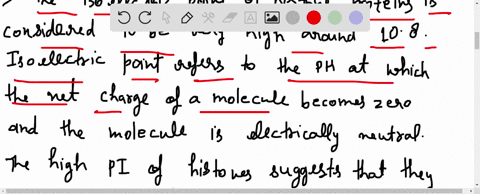 the isoelectric point of histone proteins is
considered to be very high around 10.8.
Isoelectric point refers to the PH at which
the net charge of a molecule becomes zero
and the molecule is electrically neutral.
The high PI of histones suggests that they